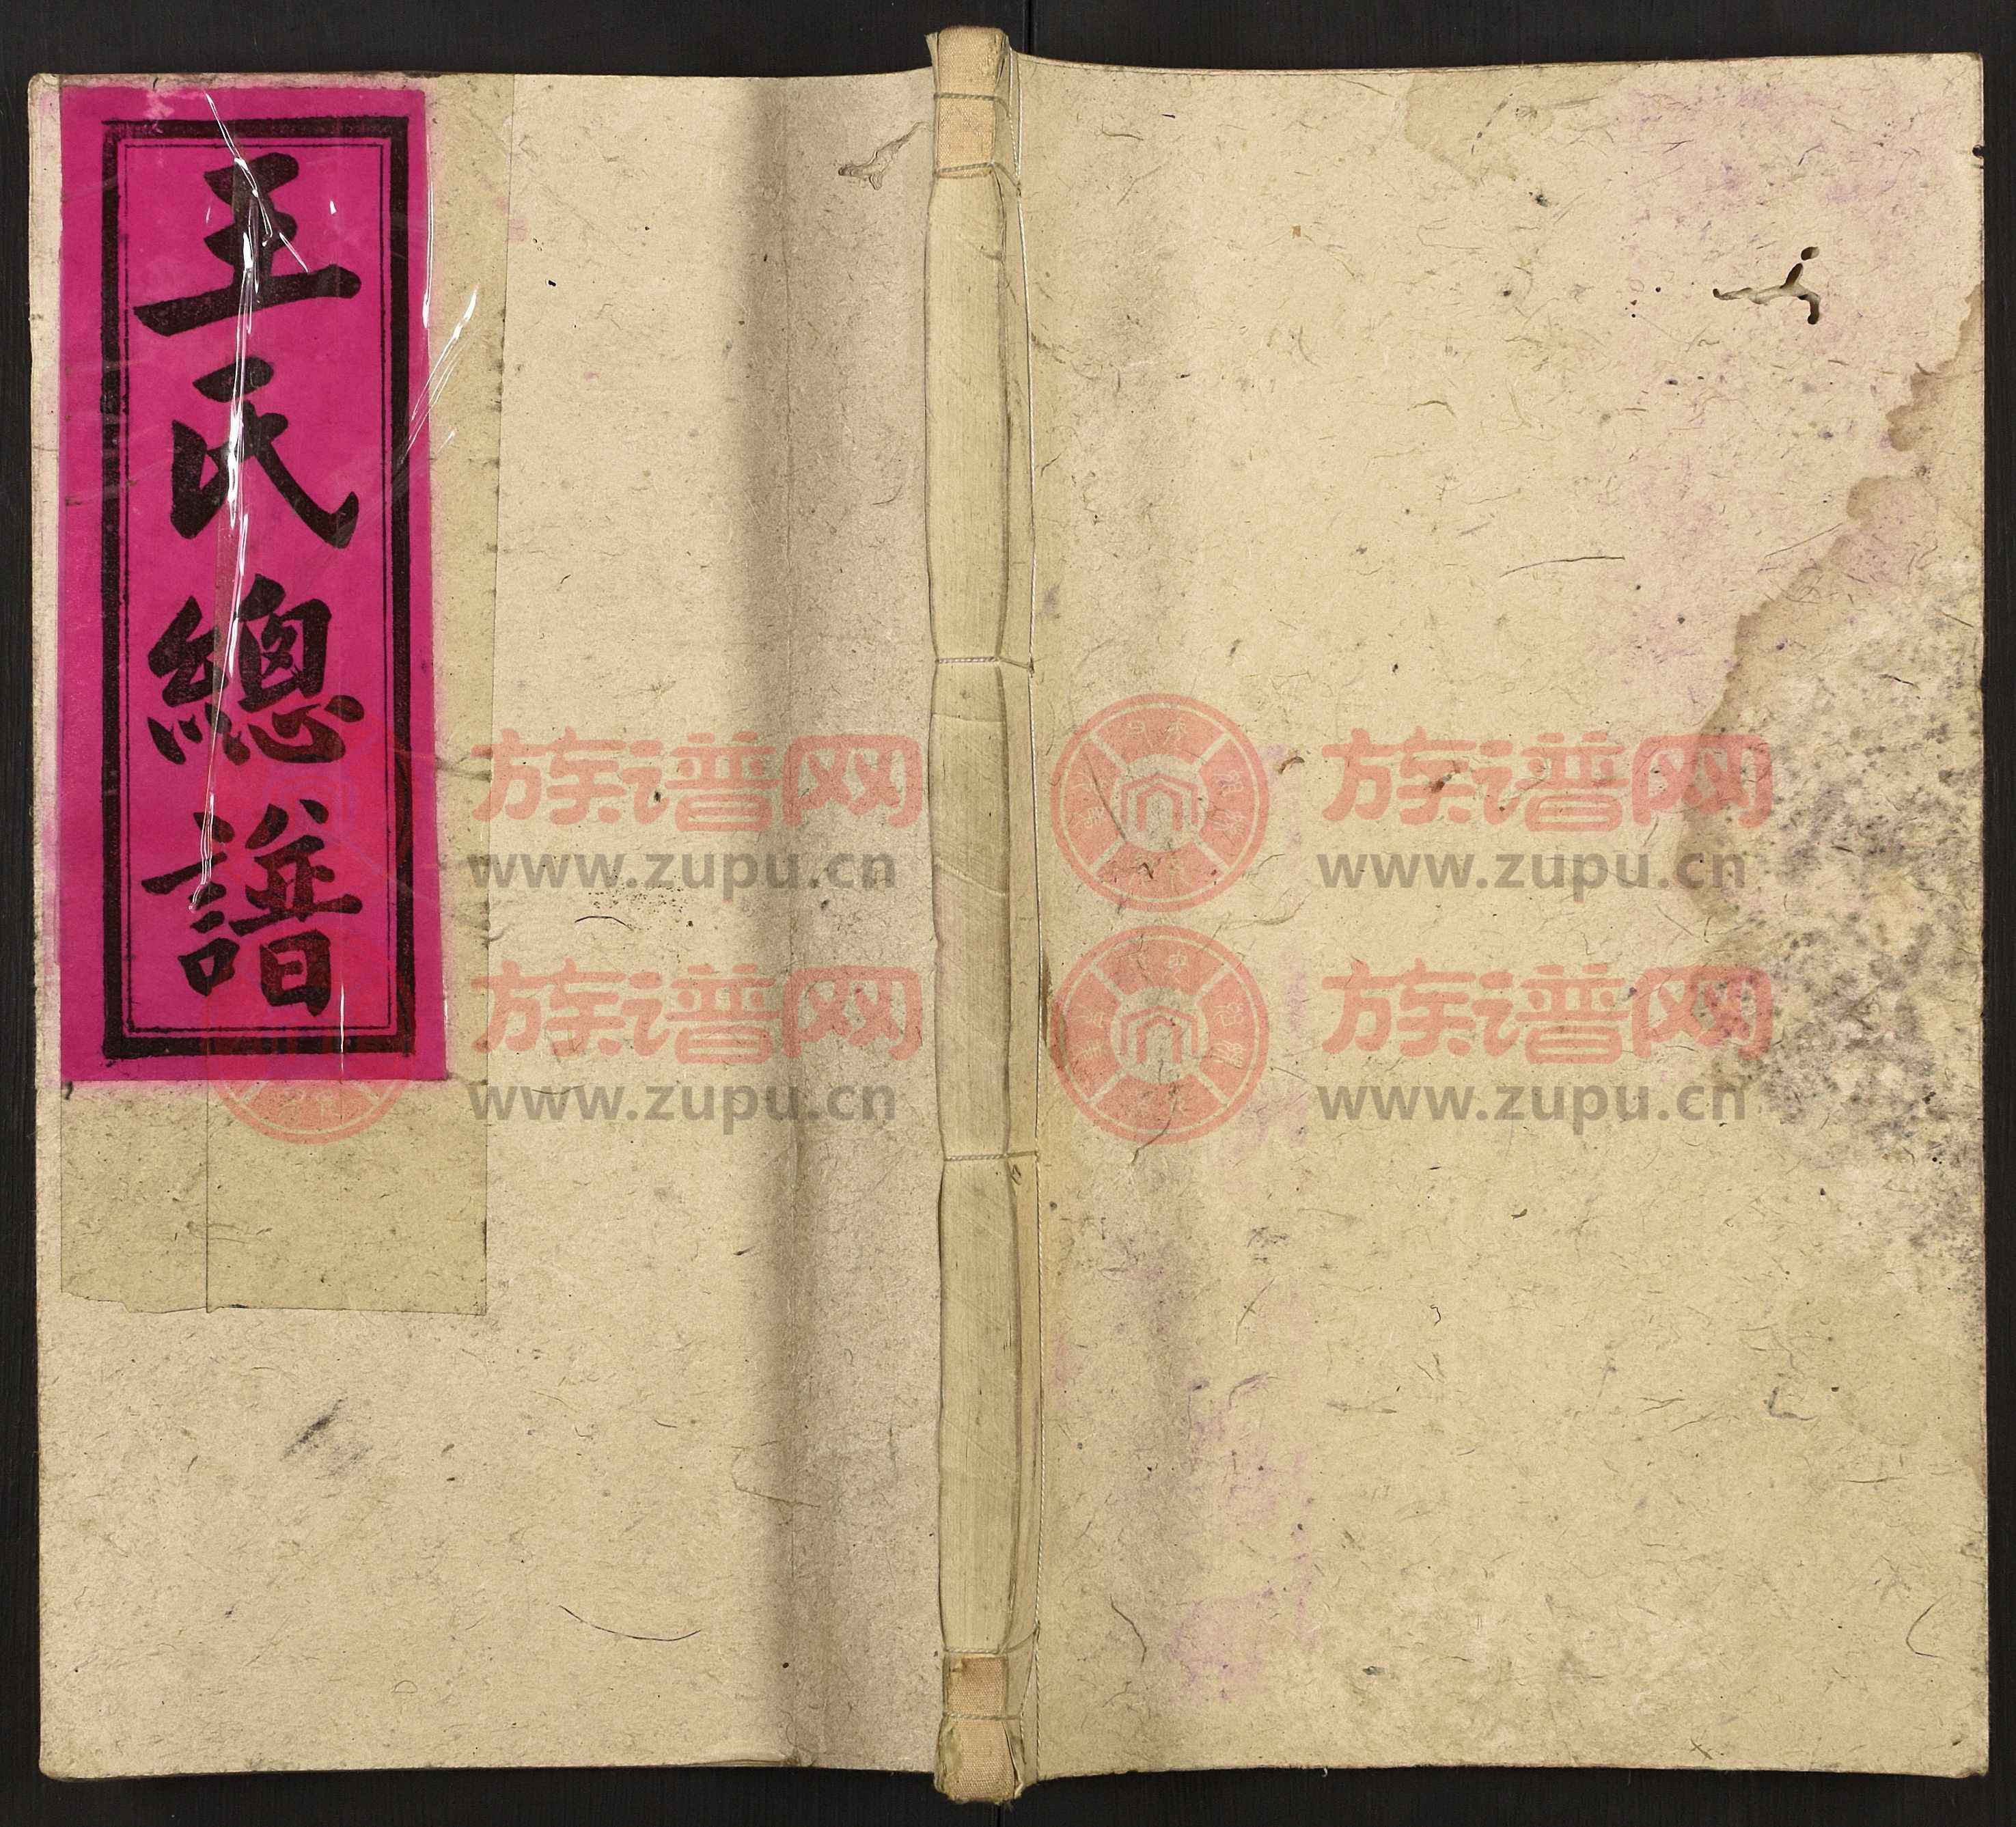 王氏總譜
族谱网 族谱网
www.zupu.cn www.zupu.cn
族谱网 族谱网
www.zupu.cn www.zupu.cn